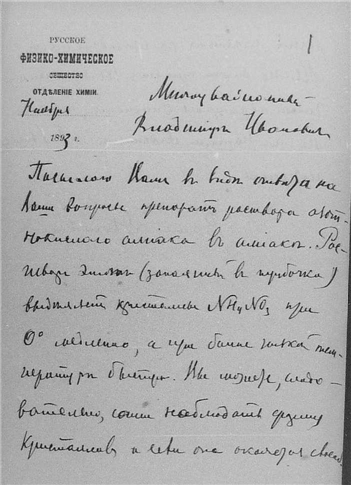 РУССКОЕ
ФИЗИКО-ХИМИЧЕСКОЕ
ОБЩЕСТВО
ОТДѢЛЕНІЕ ХИМІИ.
Ноября
1893 г.
1
Многоуважаемый
Владиміръ Ивановичъ
Посылаю Вамъ въ видѣ отвѣта на
Ваши вопросы препаратъ раствора азот-
нокислаго амміака въ амміакѣ. Рас-
творъ этотъ (запаянный въ трубочкѣ)
выдѣляетъ кристаллы NH4NO3 при
0° медленно, а при болѣе низкой тем-
пературѣ быстро. Вы можете, слѣдо-
вательно, сами наблюдать форму
кристалловъ и если она окажется